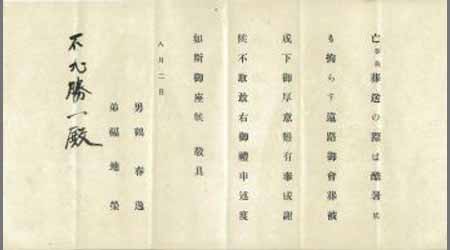 亡 葬送の際は酷暑に
も拘らす遠路御會葬被
成下御厚意難有奉感謝
候不取敢右御禮申述度
如斯御座候 敬具
八月二日
男鶴春逸
弟福地榮
勝一殿